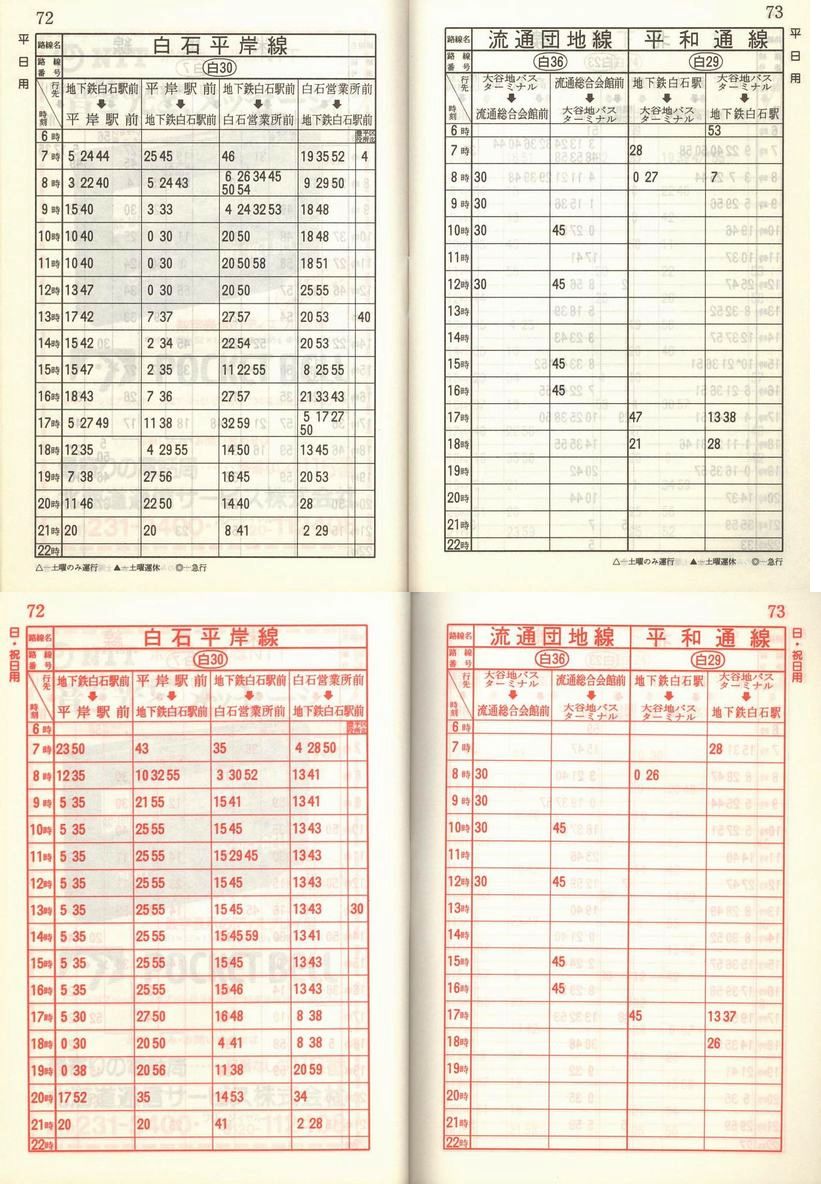 72
平日用
路線名 白石平岸線
路線番号 白30
行先 時刻 地下鉄白石駅前➡平岸駅前 平岸駅前➡地下鉄白石駅前 地下鉄白石駅前➡白石営業所前 白石営業所前➡地下鉄白石駅前
6時
7時 5 24 44 25 45 46 19 35 52 4
8時 3 22 40 5 24 43 6 26 34 45 9 29 50
50 54
9時 15 40 3 33 4 24 32 53 18 48
10時 10 40 0 30 20 50 18 48
11時 10 40 0 30 20 50 58 18 51
12時 13 47 0 30 20 50 25 55
13時 17 42 7 37 27 57 20 53 40
14時 15 42 2 34 22 54 20 53
15時 15 47 2 35 11 22 55 8 25 55
16時 18 43 7 36 27 57 21 33 43
17時 5 27 49 11 38 32 59 5 17 27
50
18時 12 35 4 29 55 14 50 13 45
19時 7 38 27 56 16 45 20 53
20時 11 46 22 50 14 40 28
21時 20 20 8 41 2 29
22時
△─土曜のみ運行 ▲─土曜運休 ◎─急行
73
平日用
路線名 流通団地線 平和通線
路線番号 白36 白29
行先 時刻 大谷地バスターミナル➡流通総合会館前 流通総合会館前➡大谷地バスターミナル 地下鉄白石駅➡大谷地バスターミナル 大谷地バスターミナル➡地下鉄白石駅
6時 53
7時 28
8時 30 0 27 7
9時 30
10時 30 45
11時
12時 30 45
13時
14時
15時 45
16時 45
17時 47 13 38
18時 21 28
19時
20時
21時
22時
△─土曜のみ運行 ▲─土曜運休 ◎─急行
72
日・祝日用
路線名 白石平岸線
路線番号 白30
行先 時刻 地下鉄白石駅前➡平岸駅前 平岸駅前➡地下鉄白石駅前 地下鉄白石駅前➡白石営業所前 白石営業所前➡地下鉄白石駅前
6時
7時 23 50 43 35 4 28 50
8時 12 35 10 32 55 3 30 52 13 41
9時 5 35 21 55 15 41 13 41
10時 5 35 25 55 15 45 13 43
11時 5 35 25 55 15 29 45 13 43
12時 5 35 25 55 15 45 13 43
13時 5 35 25 55 15 45 13 43 30
14時 5 35 25 55 15 45 59 13 41
15時 5 35 25 55 15 45 13 43
16時 5 35 25 55 15 46 13 43
17時 5 30 27 50 16 48 8 38
18時 0 30 20 50 4 41 8 38
19時 0 38 20 56 11 38 20 59
20時 17 52 35 14 53 34
21時 20 20 41 2 28
22時
73
日・祝日用
路線名 流通団地線 平和通線
路線番号 白36 白29
行先 時刻 大谷地バスターミナル➡流通総合会館前 流通総合会館前➡大谷地バスターミナル 地下鉄白石駅➡大谷地バスターミナル 大谷地バスターミナル➡地下鉄白石駅
6時
7時 28
8時 30 0 26
9時 30
10時 30 45
11時
12時 30 45
13時
14時
15時 45
16時 45
17時 45 13 37
18時 26
19時
20時
21時
22時